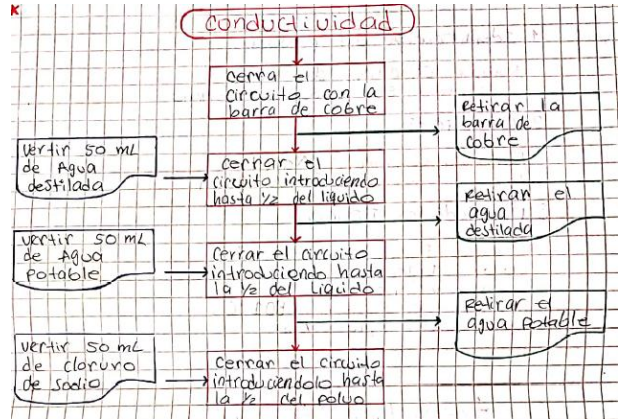 K
Conductividad
cerra el
circuito con la
barra de cobre
Retirar la
barra de
cobre
Vertir 50 mL
de Agua
destilada
cerrar el
circuito introduciendo
hasta 1/2 del liquido
Retirar el
agua
destilada
vertir 50 mL
de Agua
Potable
Cerrar el circuito
introduciendo hasta
la 1/2 del Liquido
Retirar el
agua Potable
vertir 50 mL
de cloruro
de sodio
Cerrar el circuito
introduciendolo hasta
la 1/2 del Polvo